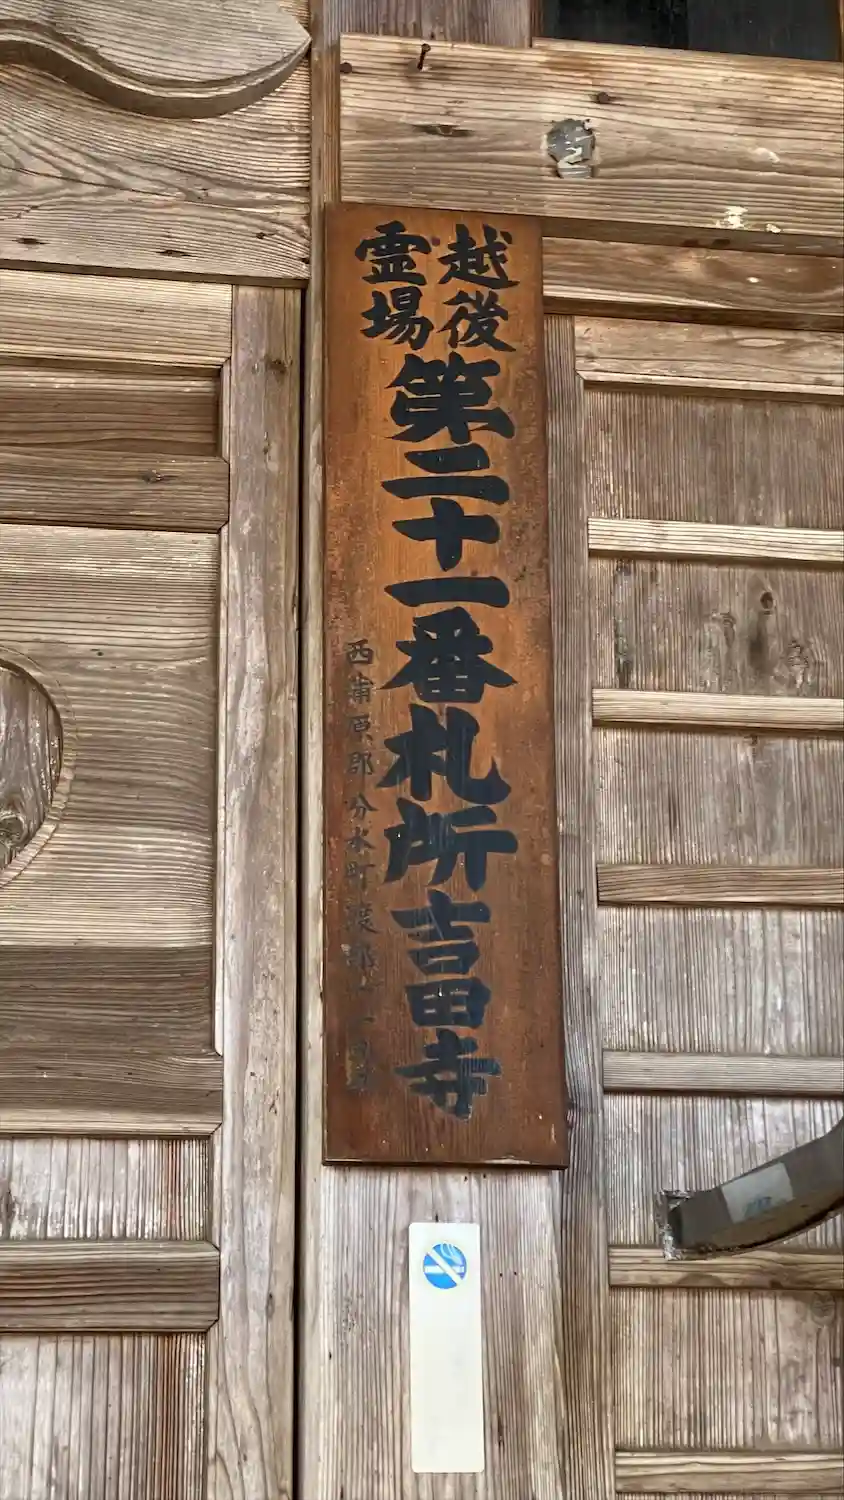 越後
霊場
第二十一番札所吉田寺
西蒲原郡分水町渡部